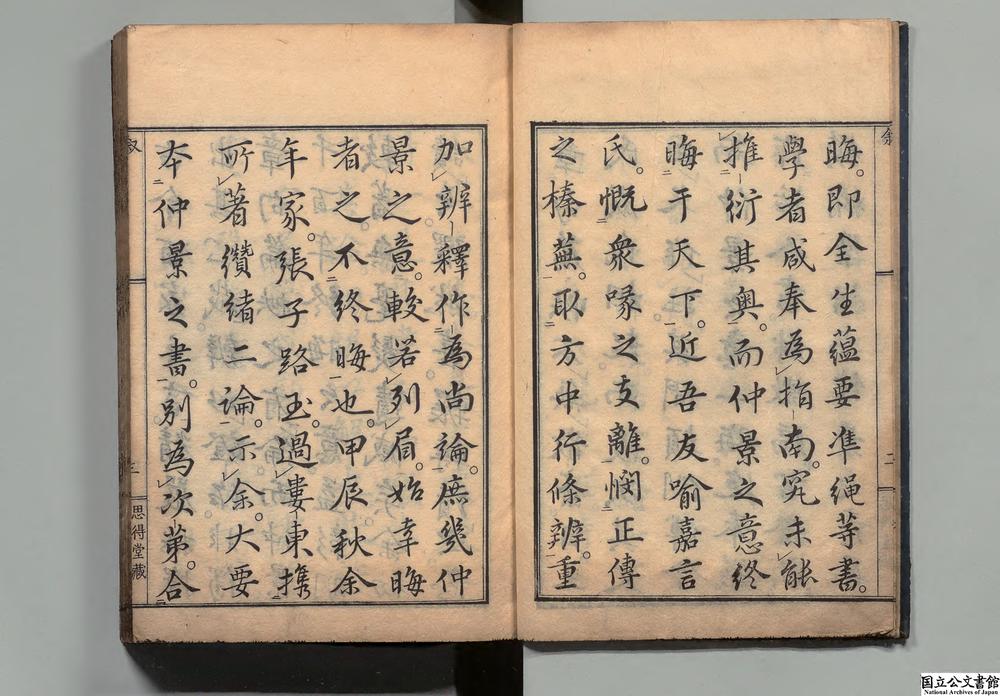 晦。即全生蘊要準繩等書。
學者咸奉為指南。究未能
推衍其奥。而仲景之意終
晦于天下。近吾友喻嘉言
氏。慨衆喙之支離。憫正傳
之榛蕪。取方中行條辨。重
叙
二
加辨釋作為尚論。庶幾仲
景之意。較若列眉。始幸晦
者之不終晦也。甲辰秋余
年家。張子路玉。過婁東携
所著纘緒二論。示余。大要
本仲景之書。別為次第。合
叙
三
思得堂藏
国立公文書館
National Archives of Japan